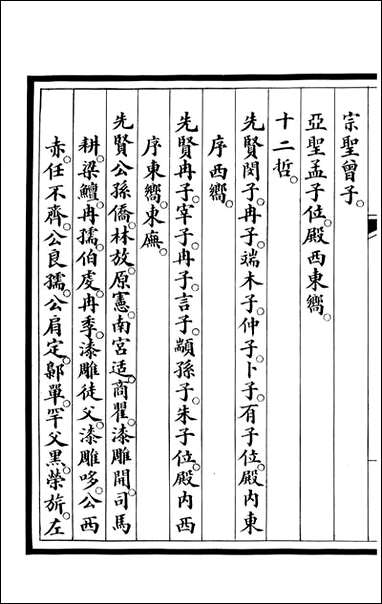 宗聖曾子。
亞聖孟子位。殿西東嚮。
十二哲。
先賢閔子。冉子。端木子。仲子。卜子。有子位。殿内東
序西嚮。
先賢冉子。宰子。冉子。言子。顓孫子。朱子位。殿内西
序東嚮。東廡。
先賢公孫僑。林放。原憲。南宮适。商瞿。漆雕開。司馬
耕。梁鱣。冉孺。伯虔。冉季。漆雕徒父。漆雕哆。公西
赤。任不齊。公良孺。公肩定。鄡單。罕父黑。榮旂。左